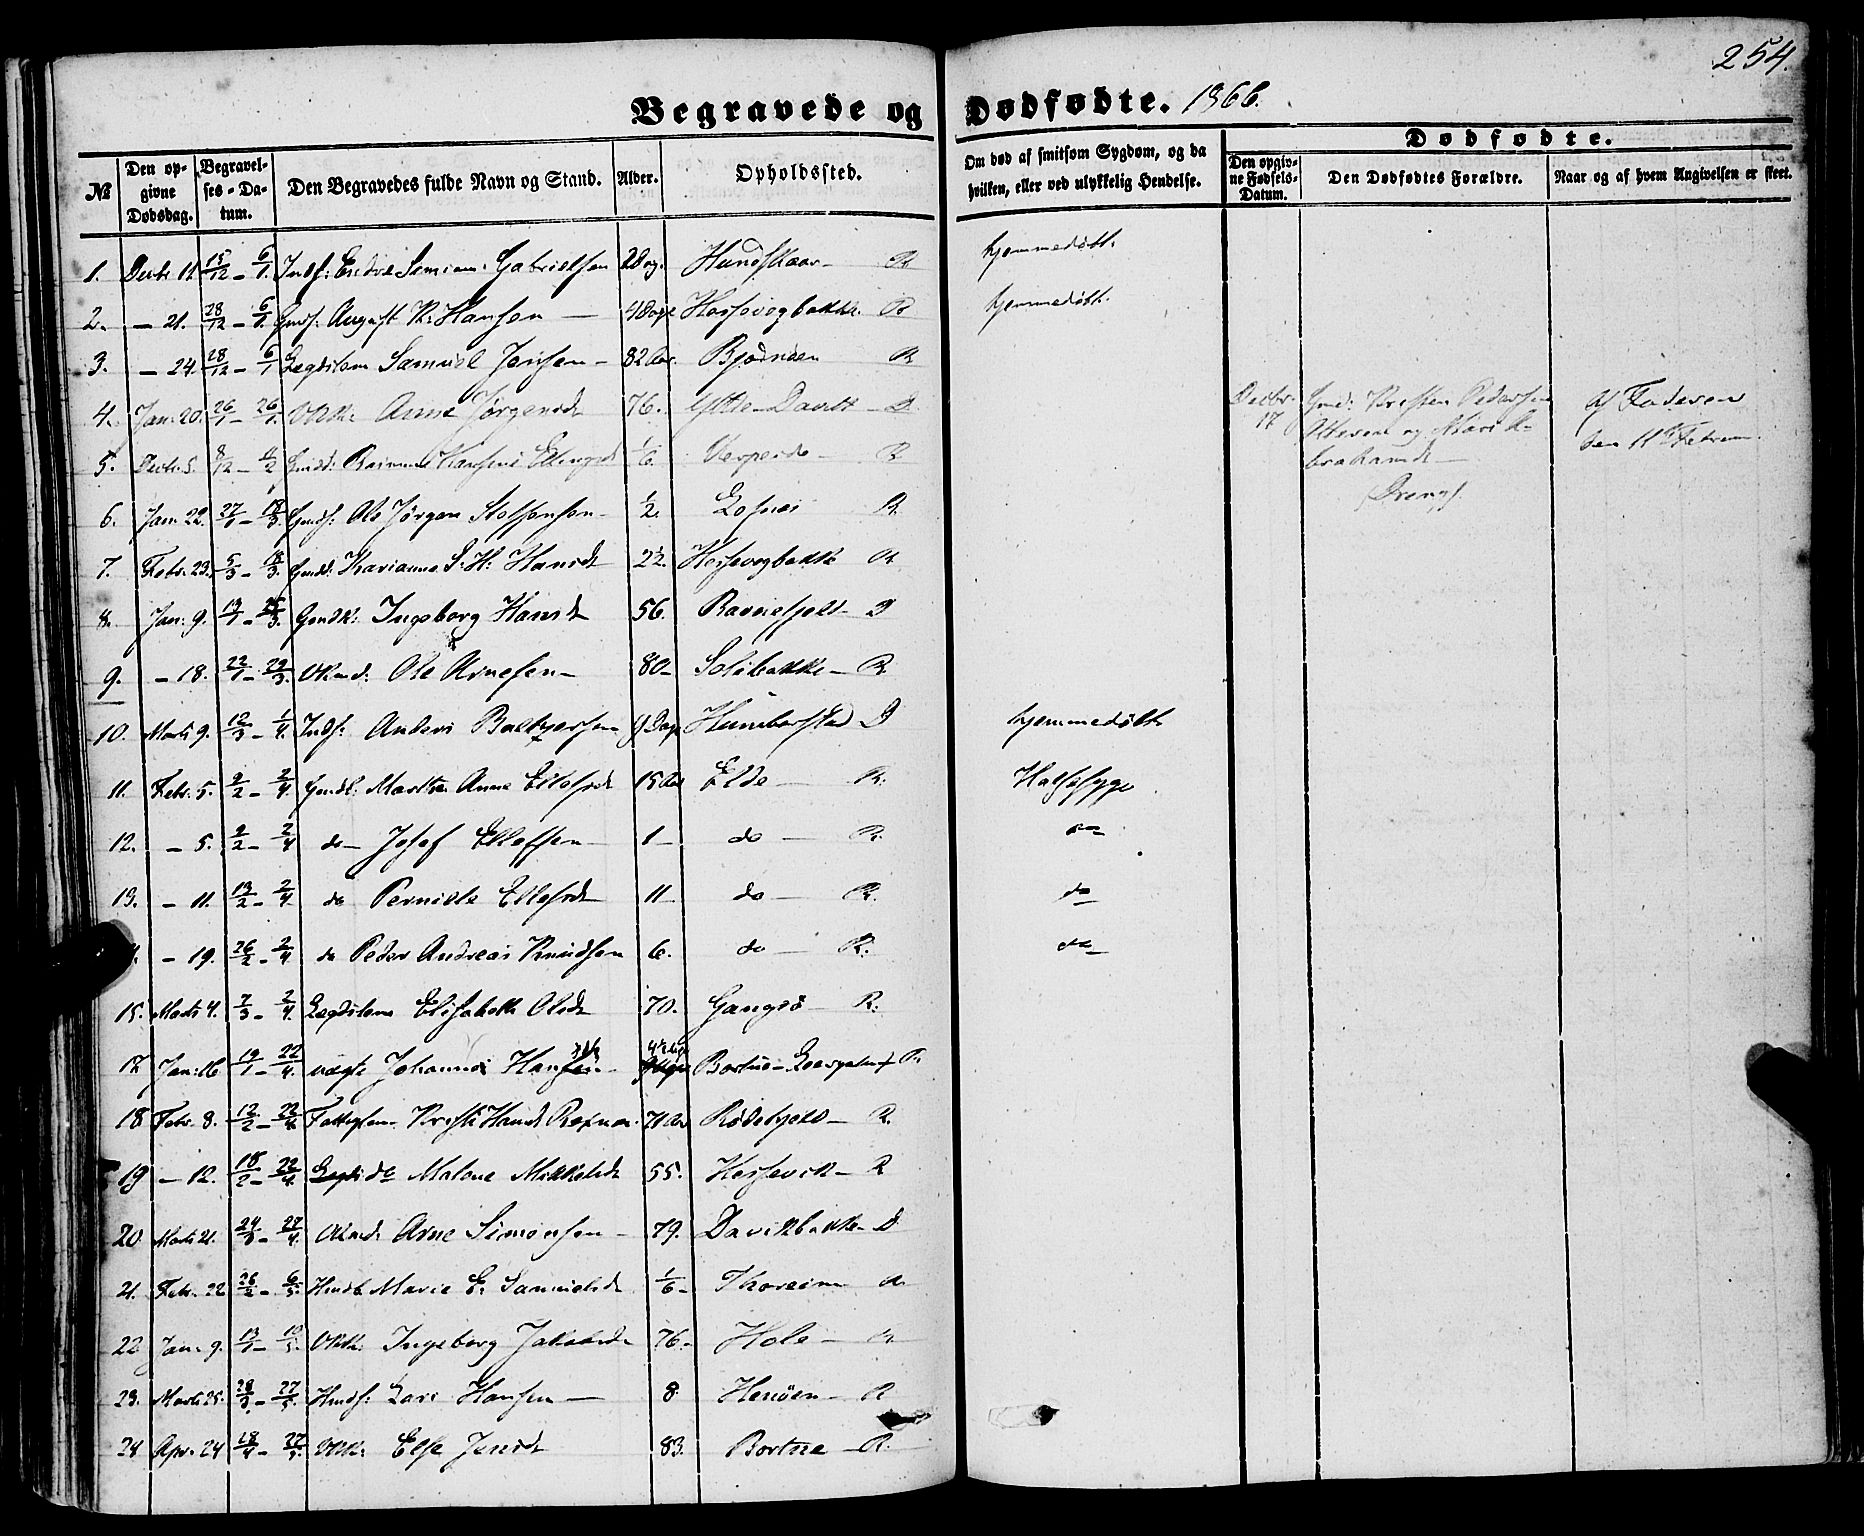 254.
Begravede og Dødfødte. 1866.
№
Den opgivne Dødsdag.
Begravelses-Datum.
Den Begravedes fulde Navn og Stand.
Alder.
Opholdssted.
Om død af smitsom Sygdom, og da hvilken, eller ved ulykkelig Hendelse.
Dødfødte.
Den opgivne Fødsels-Datum.
Den Dødfødtes Forældre.
Naar og af hvem Angivelsen er skeet.
1. Decbr. 11. 15/12 - 6/1. Inds: Gabrielsen 2 Dag. Hundskaar - R hjemmedøbt.
2. - 21. 28/12 - 6/1. Gmds: August K. Hansen - 4 Dage Hessevegbakke. R hjemmedøbt.
3. - 24. 28/12 - 6/1 Lægdslem Samuel Jensen - 82 Aar. Bjørnøen R
4. Jan: 20. 26/1 - 26/1. Vkk: Anne Jørgensd 76. Ytre-Davik - D.
Decbr. 17 Gmd: Kresten Pedersen
og
(Dreng).
Af Faderen
den 11te Februar.
5. Decbr. 5. 8/12 - 4/2 Gmdd: 1/6. R
6. Jan: 22. 27/1 - 18/3. Gmds: Ole Jørgen 1/2. R.
7. Febr. 23. 5/3 - 18/3. Gmdd: Karianne S. H. Hansd 2 1/2. Hessevegbakke R
8. Jan: 9. 13/1 - 25/3. Gmdk: Ingeborg Hansd 56. Ravnefjeld - D
9. - 18. 22/1 - 29/3. Vkmd: Ole Arnesen - 80 - Solibakke - R
10. Marts 9. 12/3 - 1/4. Inds: Anders 9 Dage Humborstad D hjemmedøbt
11. Febr. 5. 9/2 - 2/4. Gmdd: Marthe Anne Ellefsd 15 Aar Elde - R. Halssyge
12. - 5. 9/2 - 2/4 do - Josef Ellefsen - 1 - do - R. do
13. - 11. 13/2 - 2/4 do Pernille Ellefsd 11 do - R. do
- 19. 26/2 - 2/4 do Peder Andreas Knudsen 6. do - R. do
15. Marts 4. 7/3 - 2/4. Lægdslem Elisabeth Olsd 70. Gangsø - R.
17. Jan: 16 19/1 - 22/4. uægte Johanne Hansdtr Bortne - R.
18 Febr. 8. 12/2 - 22/4. Hansd 71 Aar Rødefjeld - R.
19 - 12. 18/2 - 22/4. do Malene Mikkelsd 55. Hessevik - R
20 Marts 21. 24/3 - 22/4. Arne Simonsen - 79. Davikbakke - D
21. Febr. 22 26/2 - 6/5. Hmdd. Marie E. Samuelsd 1/6 - Thoreim R
22 Jan: 9. 13/1 - 10/5. Vkk: Ingeborg Jakobsd 76 - Hole - R
23. Marts 25. 28/3 - 27/5. Hmds: Lars Hansen - 8 Henøen - R
24 Apr. 24 28/4 - 27/5. Vkk: Else Jensd 83. Bortne - R.